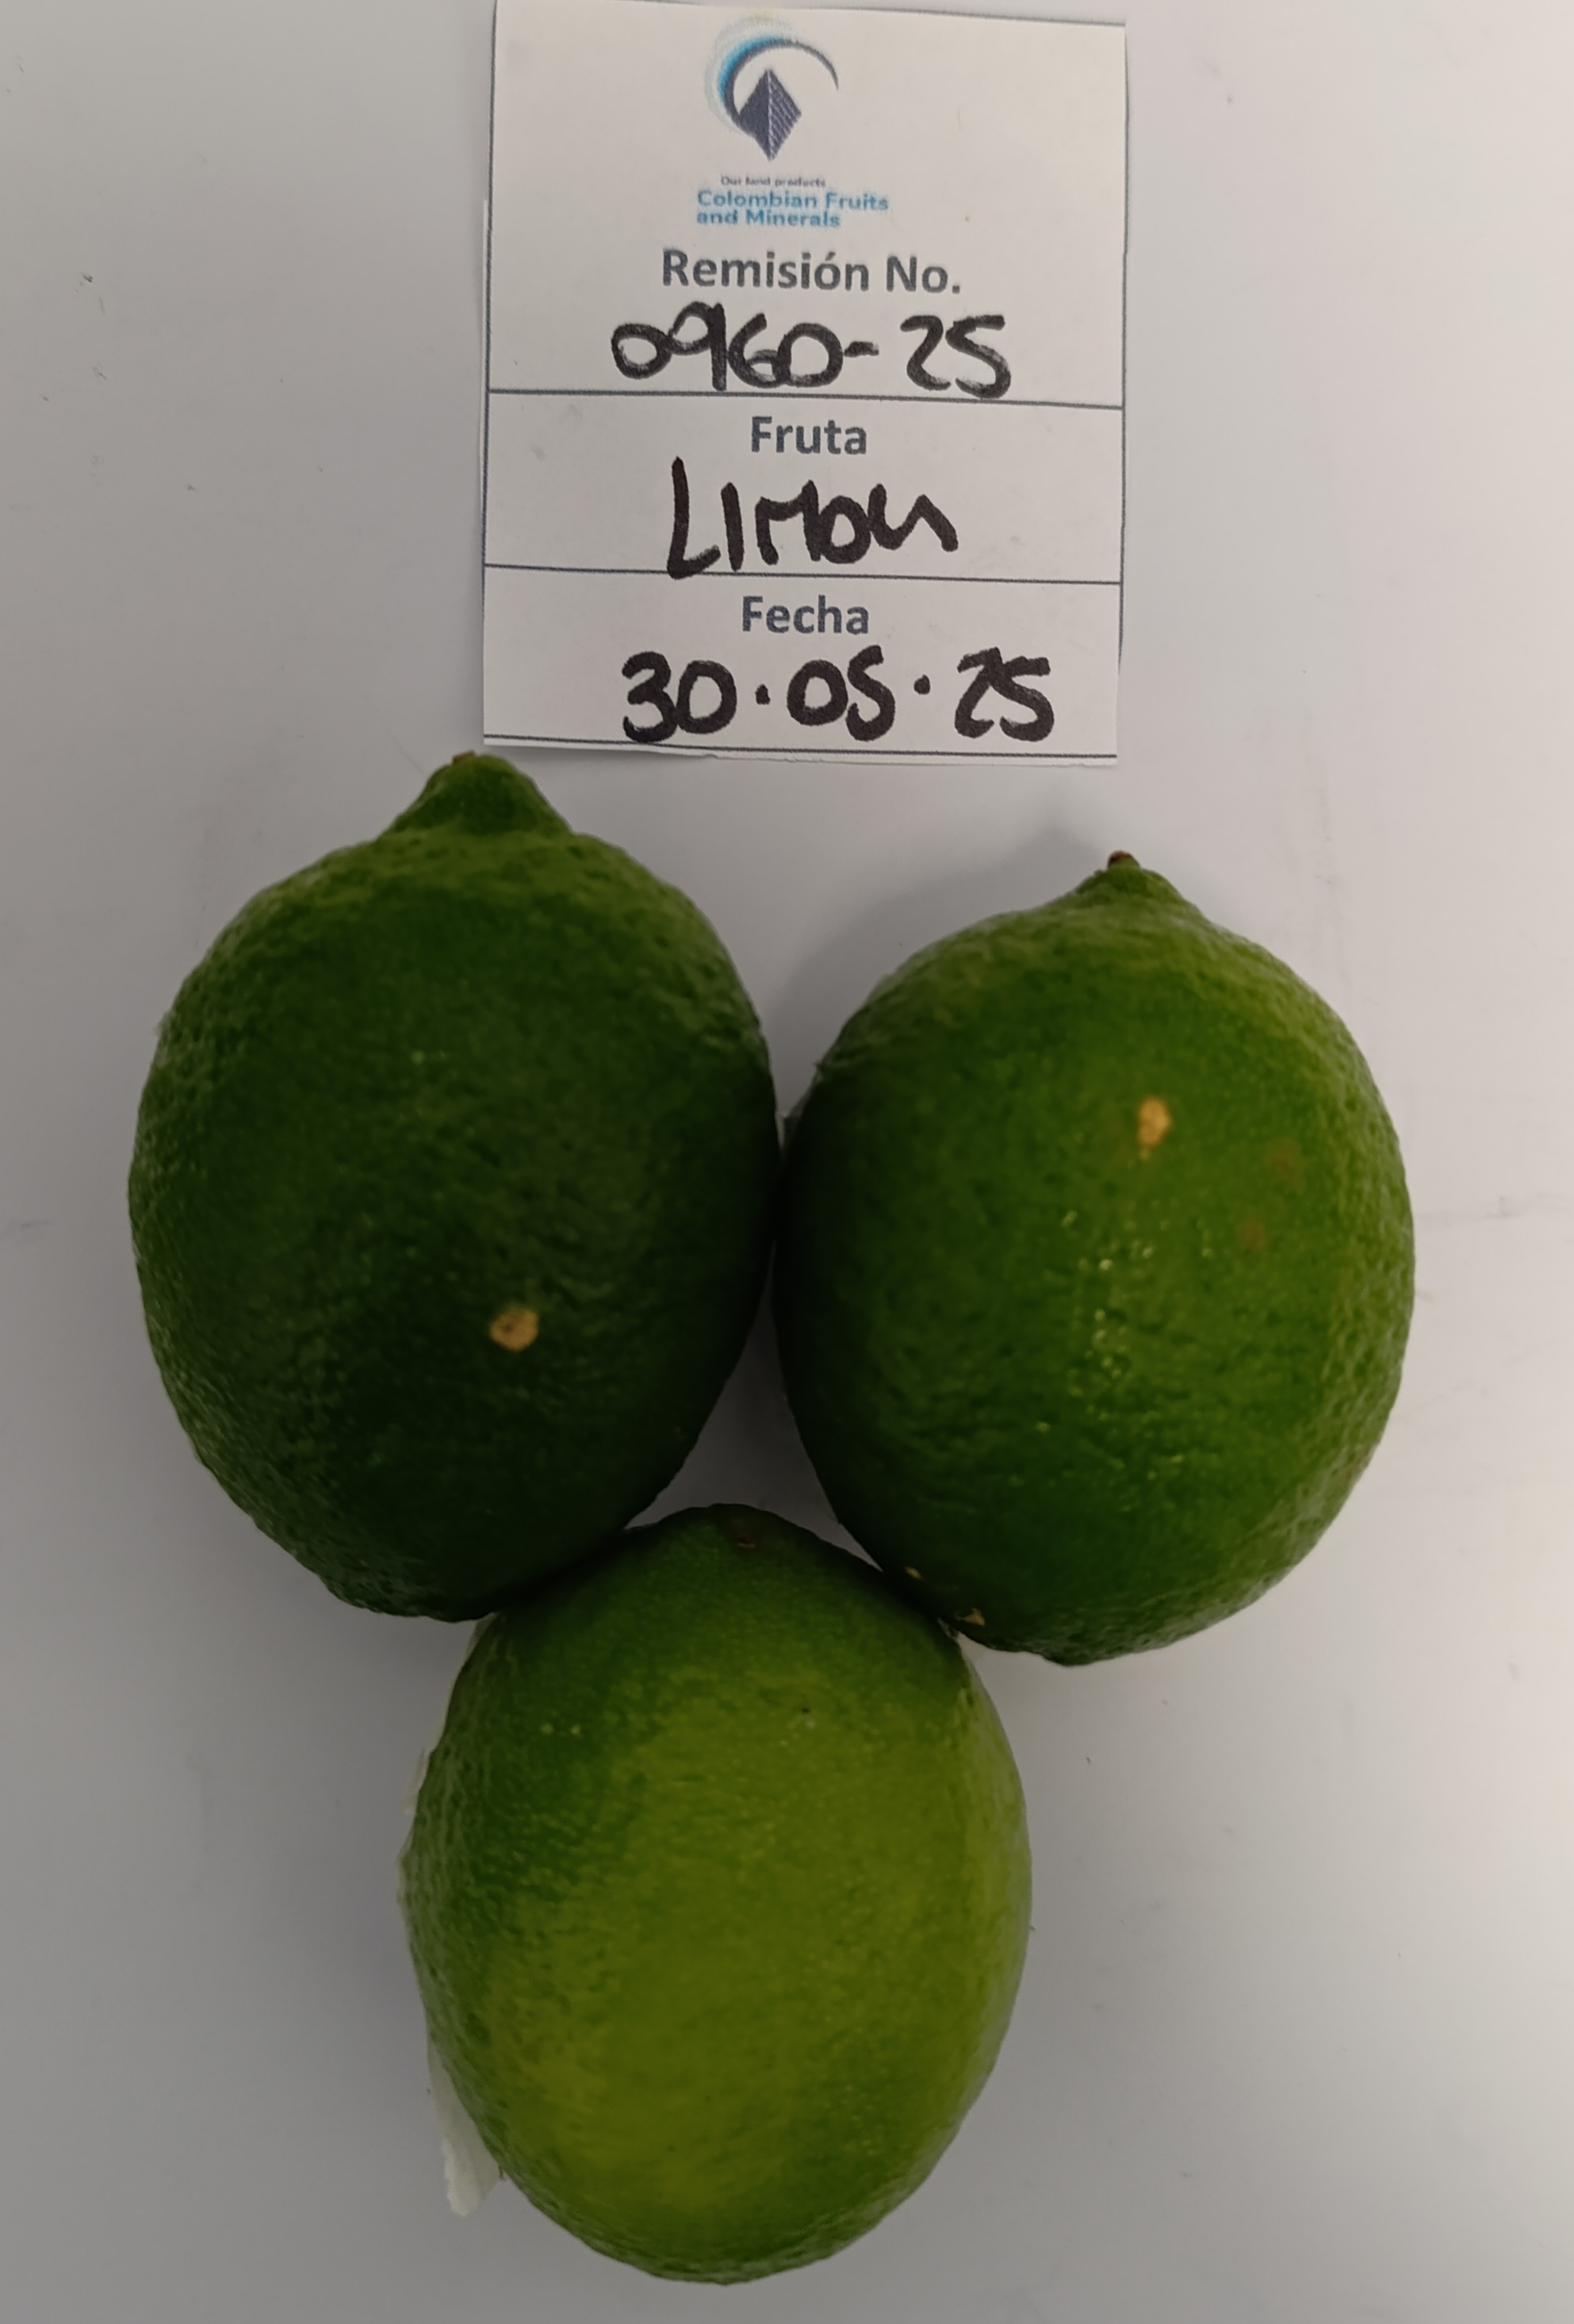 Our land products
Colombian Fruits
and Minerals
Remisión No.
0960-25
Fruta
LIMON
Fecha
30·05·25